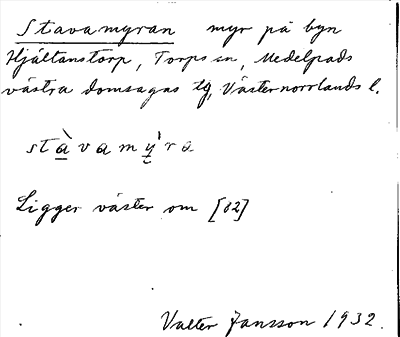 Stavamyran myr på byn
Hjältanstorp, Torps sn, Medelpads
västra domsagas tg, Västernorrlands l.
stàvamỳra
Ligger väster om [02]
Valter Jansson 1932.